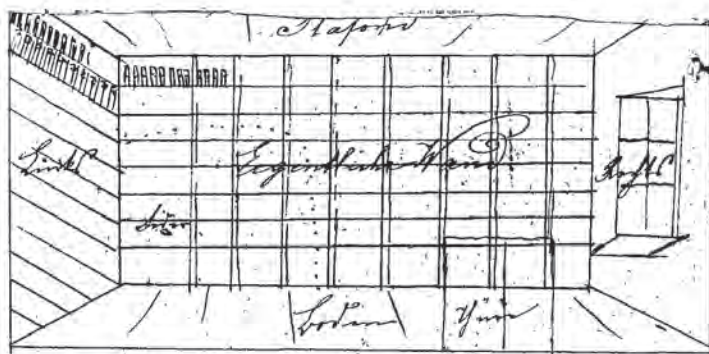 Plafond
Links
Eigentliche Wand
Rechts
Boden
Thüre